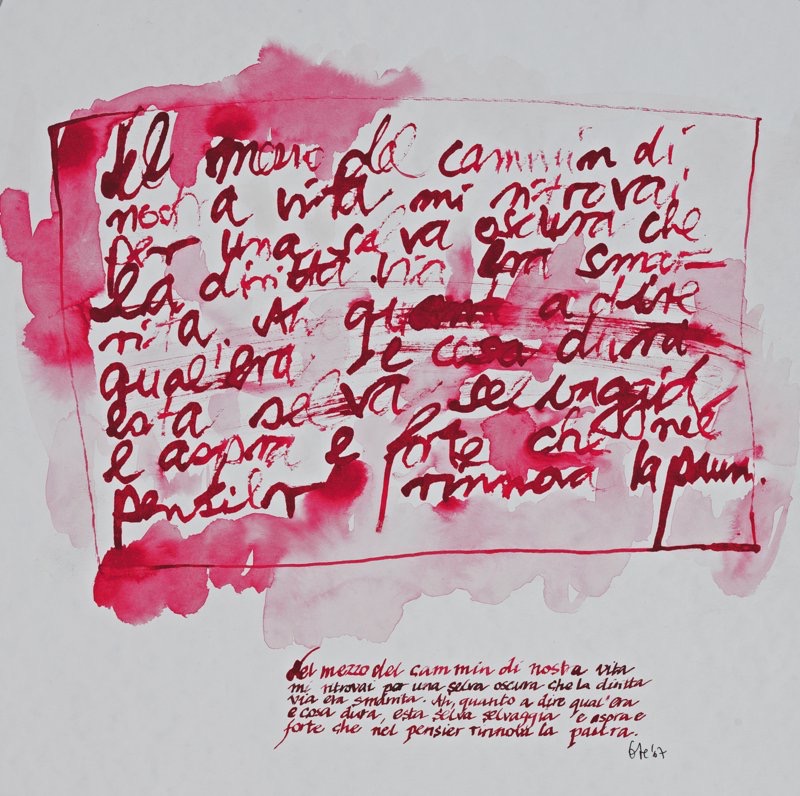 Nel mezzo del cammin di
nostra vita mi ritrovai
per una selva oscura che
la diritta via era smar-
rita. Ah quanto a dire
qual'era e cosa dura
esta selva selvaggia
e aspra e forte che nel
pensier rinnova la paura.
Nel mezzo del cammin di nostra vita
mi ritrovai per una selva oscura che la diritta
via era smarrita. Ah, quanto a dire qual'era
e cosa dura, esta selva selvaggia e aspra e
forte che nel pensier rinnova la paura.